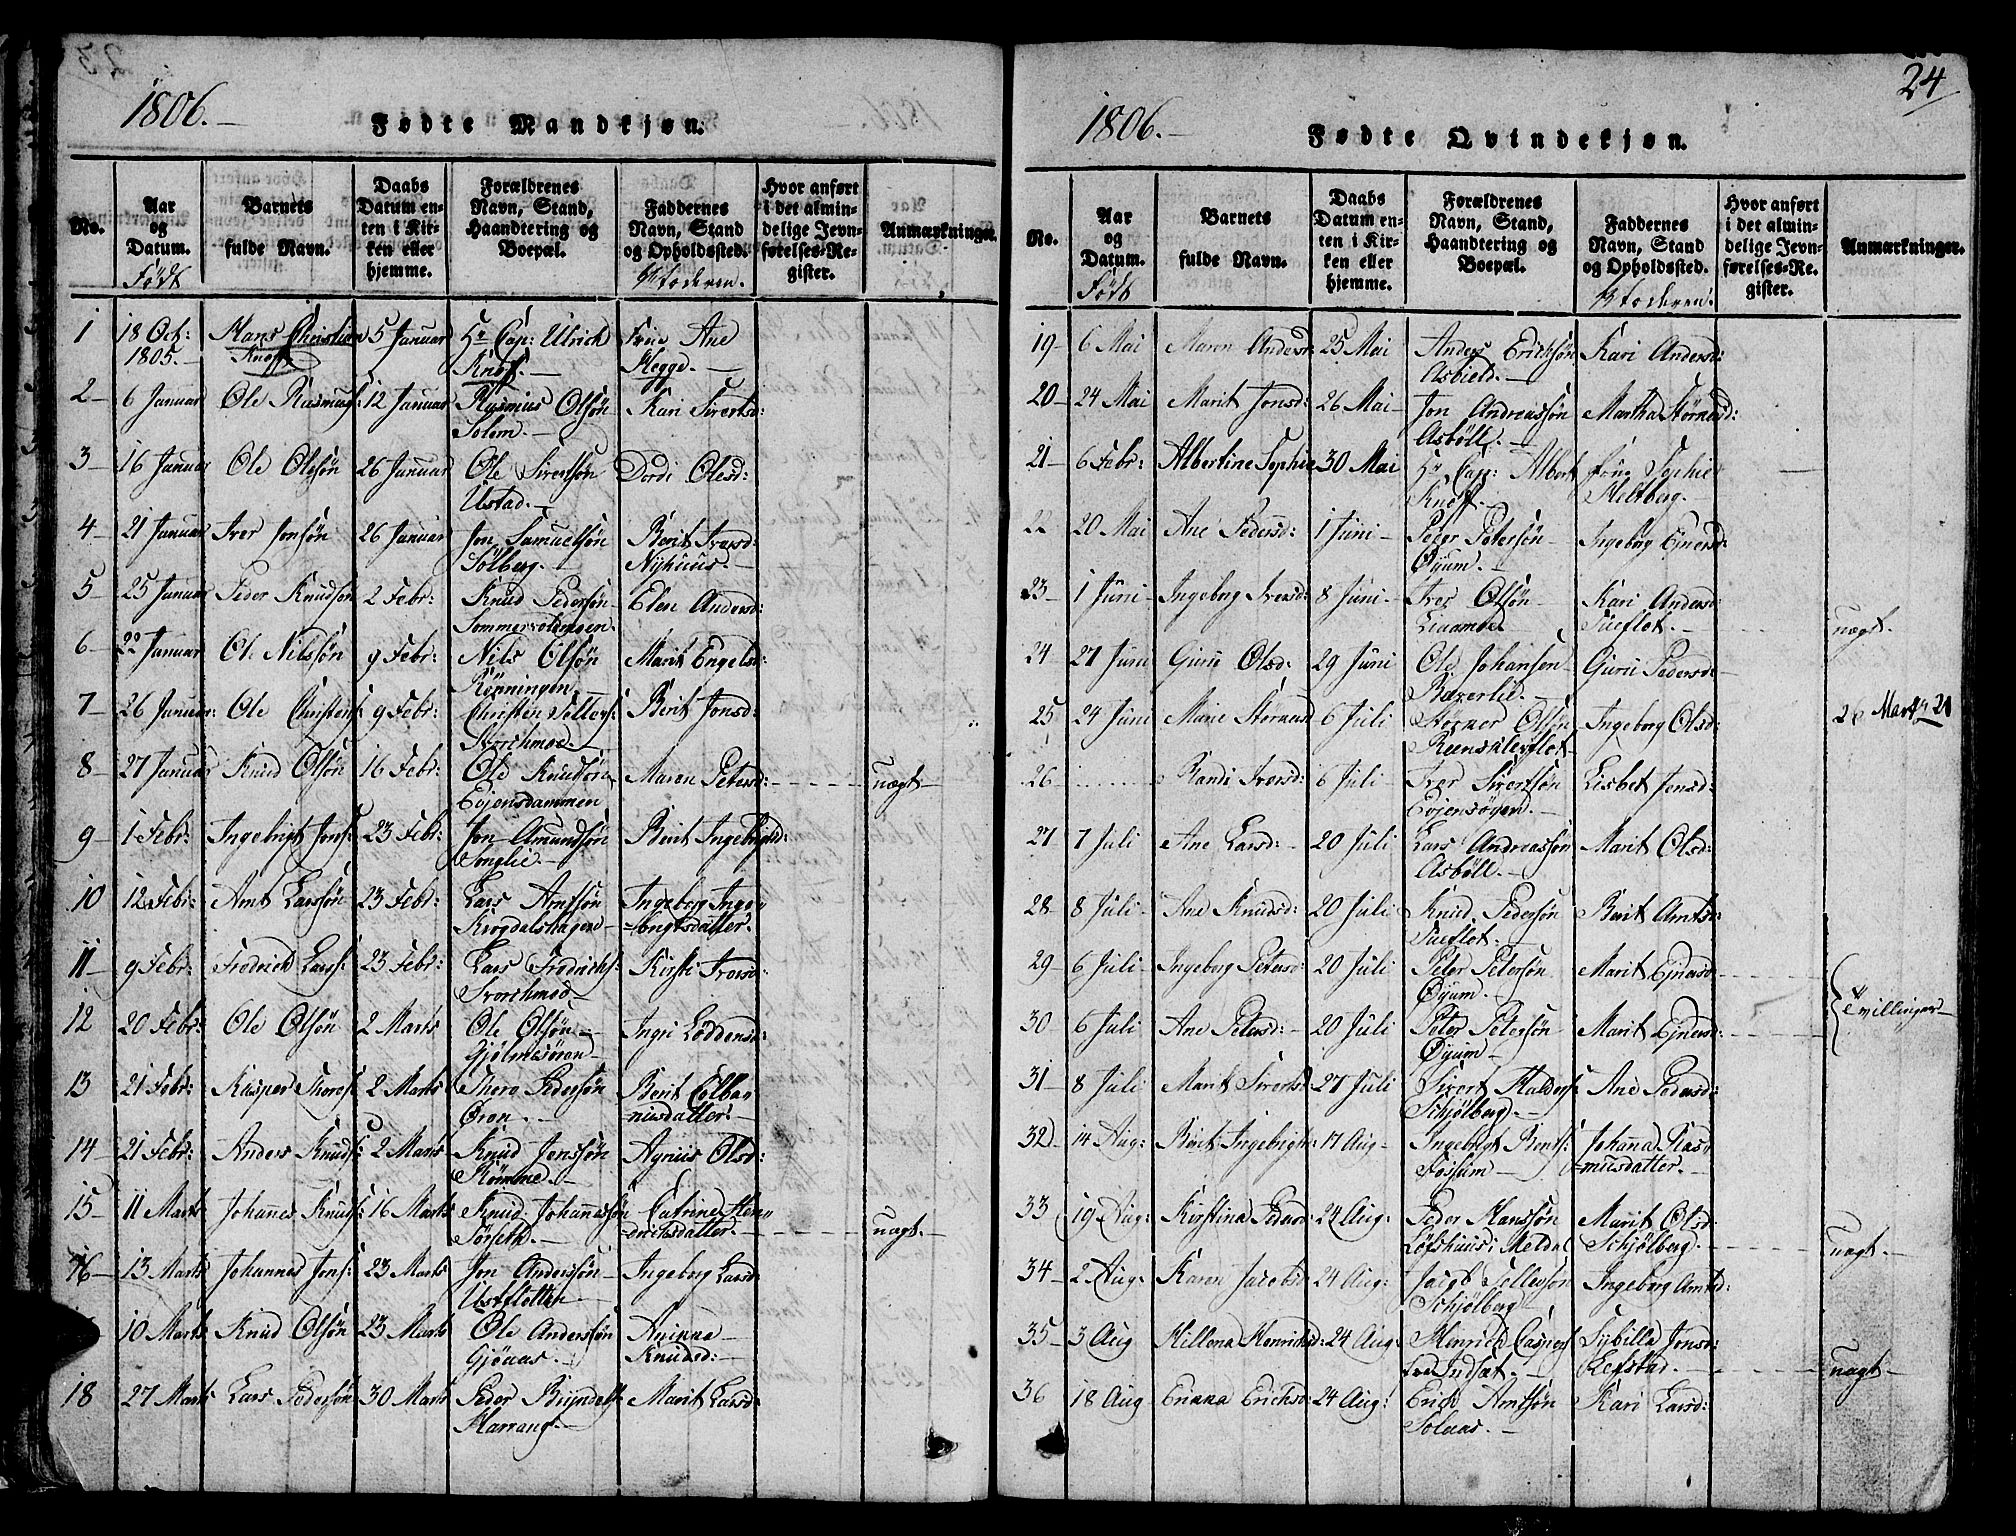 1806.
Fødte Mandkjøn.
No.
Aar og Datum.
Født
Barnets fulde Navn.
Daabs Datum enten i Kirken eller hjemme.
Forældrenes Navn, Stand, Haandtering og Boepæl.
Faddernes Navn, Stand og Opholdssted.
Moderen.
Hvor anført i det almindelige Jevnførelses-Register.
Anmærkninger.
1 18 Oct: 1805. Hans Christian Knoff 5 Januar Hr Cap: Ulrich Knoff. Frue Ane Hegge.
2 6 Januar Ole Rasmus: 12 Januar Rasmus Olsøn Solem. Kari Sivertsd:
3 16 Januar Ole Olesøn 26 Januar Ole Sivertsøn Ustad. Dordi Olesd:
4 21 Januar Iver Jonsøn 26 Januar Jon Samuelsøn Sølberg. Berit Iversd: Nyhuus.
5 25 Januar Peder Knudsøn 2 Febr: Knud Pedersøn Elen Andersd:
6 22 Januar Ole Nilssøn 9 Febr: Nils Olsøn Rönningen. Marit Engelsd:
7 26 Januar: Ole Christens: 9 Febr: Christen Tellefs: Storchmoe. Berit Jonsd:
8 27 Januar Knud Olsøn 16 Febr: Ole Knudsøn Evjensdammen Maren Petersd: uægt
9 1 Febr: Ingebrigt Jons: 23 Febr: Jon Amundsøn Songlie Berit Ingebrigtsd:
10 12 Febr: Arnt Larssøn 23 Febr: Lars Arntsøn Krogdalshagen Ingeborg Ingebrigtsdatter.
11 9 Febr: Fredrich Lars: 23 Febr: Lars Fredrichs: Storchmoe Kirsti Iversd:
12 20 Febr: Ole Olsøn 2 Marts Ole Olsøn Gjølmesøran Ingri Loddensd:
13 21 Febr: Kasper Thores: 2 Marts Thore Pedersøn Øren. Berit Colbanusdatter.
14 21 Febr: Anders Knuds: 2 Marts Knud Jenssøn Römme. Agnus Olsd:
15 11 Marts Johannes Knuds: 16 Marts Knud Johannessøn Sørseth. Catrine Henderichsdatter. uægt.
16 13 Marts Johannes Jons: 23 Marts Jon Anderssøn Ustfletten Ingeborg Larsd:
10 Marts Knud Olsøn 23 Marts Ole Anderssøn Gjönaas. Aninna Knudsd:
18 27 Marts Lars Pedersøn 30 Marts Peder Harrang Marit Larsd:
1806.
24
Fødte Qvindekjøn.
No.
Aar og Datum.
Født
Barnets fulde Navn.
Daabs Datum enten i Kirken eller hjemme.
Forældrenes Navn, Stand, Haandtering og Boepæl.
Faddernes Navn, Stand og Opholdssted.
Moderen.
Hvor anført i det almindelige Jevnførelses-Register.
Anmærkninger.
19 6 Mai Maren Andersd: 25 Mai Anders Ericksøn Asbield. Kari Andersd:
20 24 Mai Marit Jonsd: 26 Mai Jon Andreassøn Asböll. Martha Störnersd:
21 6 Febr: Albertine Sophie 30 Mai Hr Cap: Albert Knoff. Frue Sophie Heltberg.
22 20 Mai Ane Pedersd: 1 Juni Peder Petersøn Øyum. Ingeborg Ejnersd:
23 1 Juni Ingeborg Iversd: 8 Juni Iver Olsøn Kari Andersd: Tuefløt. uægt.
24 27 Juni Guru Olsd: 29 Juni Ole Johansen Bæverlie. Guru Pedersd:
25 24 Juni Marie Störnersd 6 Juli Störner Olsøn Ingeborg Olsd: 26 Marts 21
26 Randi Iversd: 6 Juli Iver Sivertsøn Evjensøyen. Lisbet Jensd:
27 7 Juli Ane Larsd: 20 Juli Lars Andreassøn Asböll. Marit Olsd:
28 8 Juli Ane Knudsd: 20 Juli Knud Pedersøn Tuefløt. Berit Arntsd:
29 6 Juli Ingeborg Petersd: 20 Juli Peter Petersøn Øyum. Marit Ejnersd:
Tvillinger
30 6 Juli Ane Petersd: 20 Juli Peter Petersøn Øyum Marit Ejnersd:
31 8 Juli Marit Sivertsd: 27 Juli Sivert Halders: Schjölberg. Ane Pedersd:
32 14 Aug: Berit Ingebrigts: 17 Aug Ingebrigt Bents: Fossum Johanna Rasmusdatter.
33 19 Aug: Kirstina Pedersd: 24 Aug: Peder Hanssøn Löfshuus i Meldal Marit Olsd: Schjölberg. uægt.
34 2 Aug: Karen Jacobsd: 24 Aug: Jacob Tellefsøn Schjölberg Ingeborg Arntsd:
35 3 Aug Hellena Henrichsd: 24 Aug: Hinrich Caspers: ved Indsæt. Sybilla Jonsd: Refstad. uægt
36 18 Aug Erichsd: 24 Aug: Erich Arntsøn Solaas. Kari Larsd: